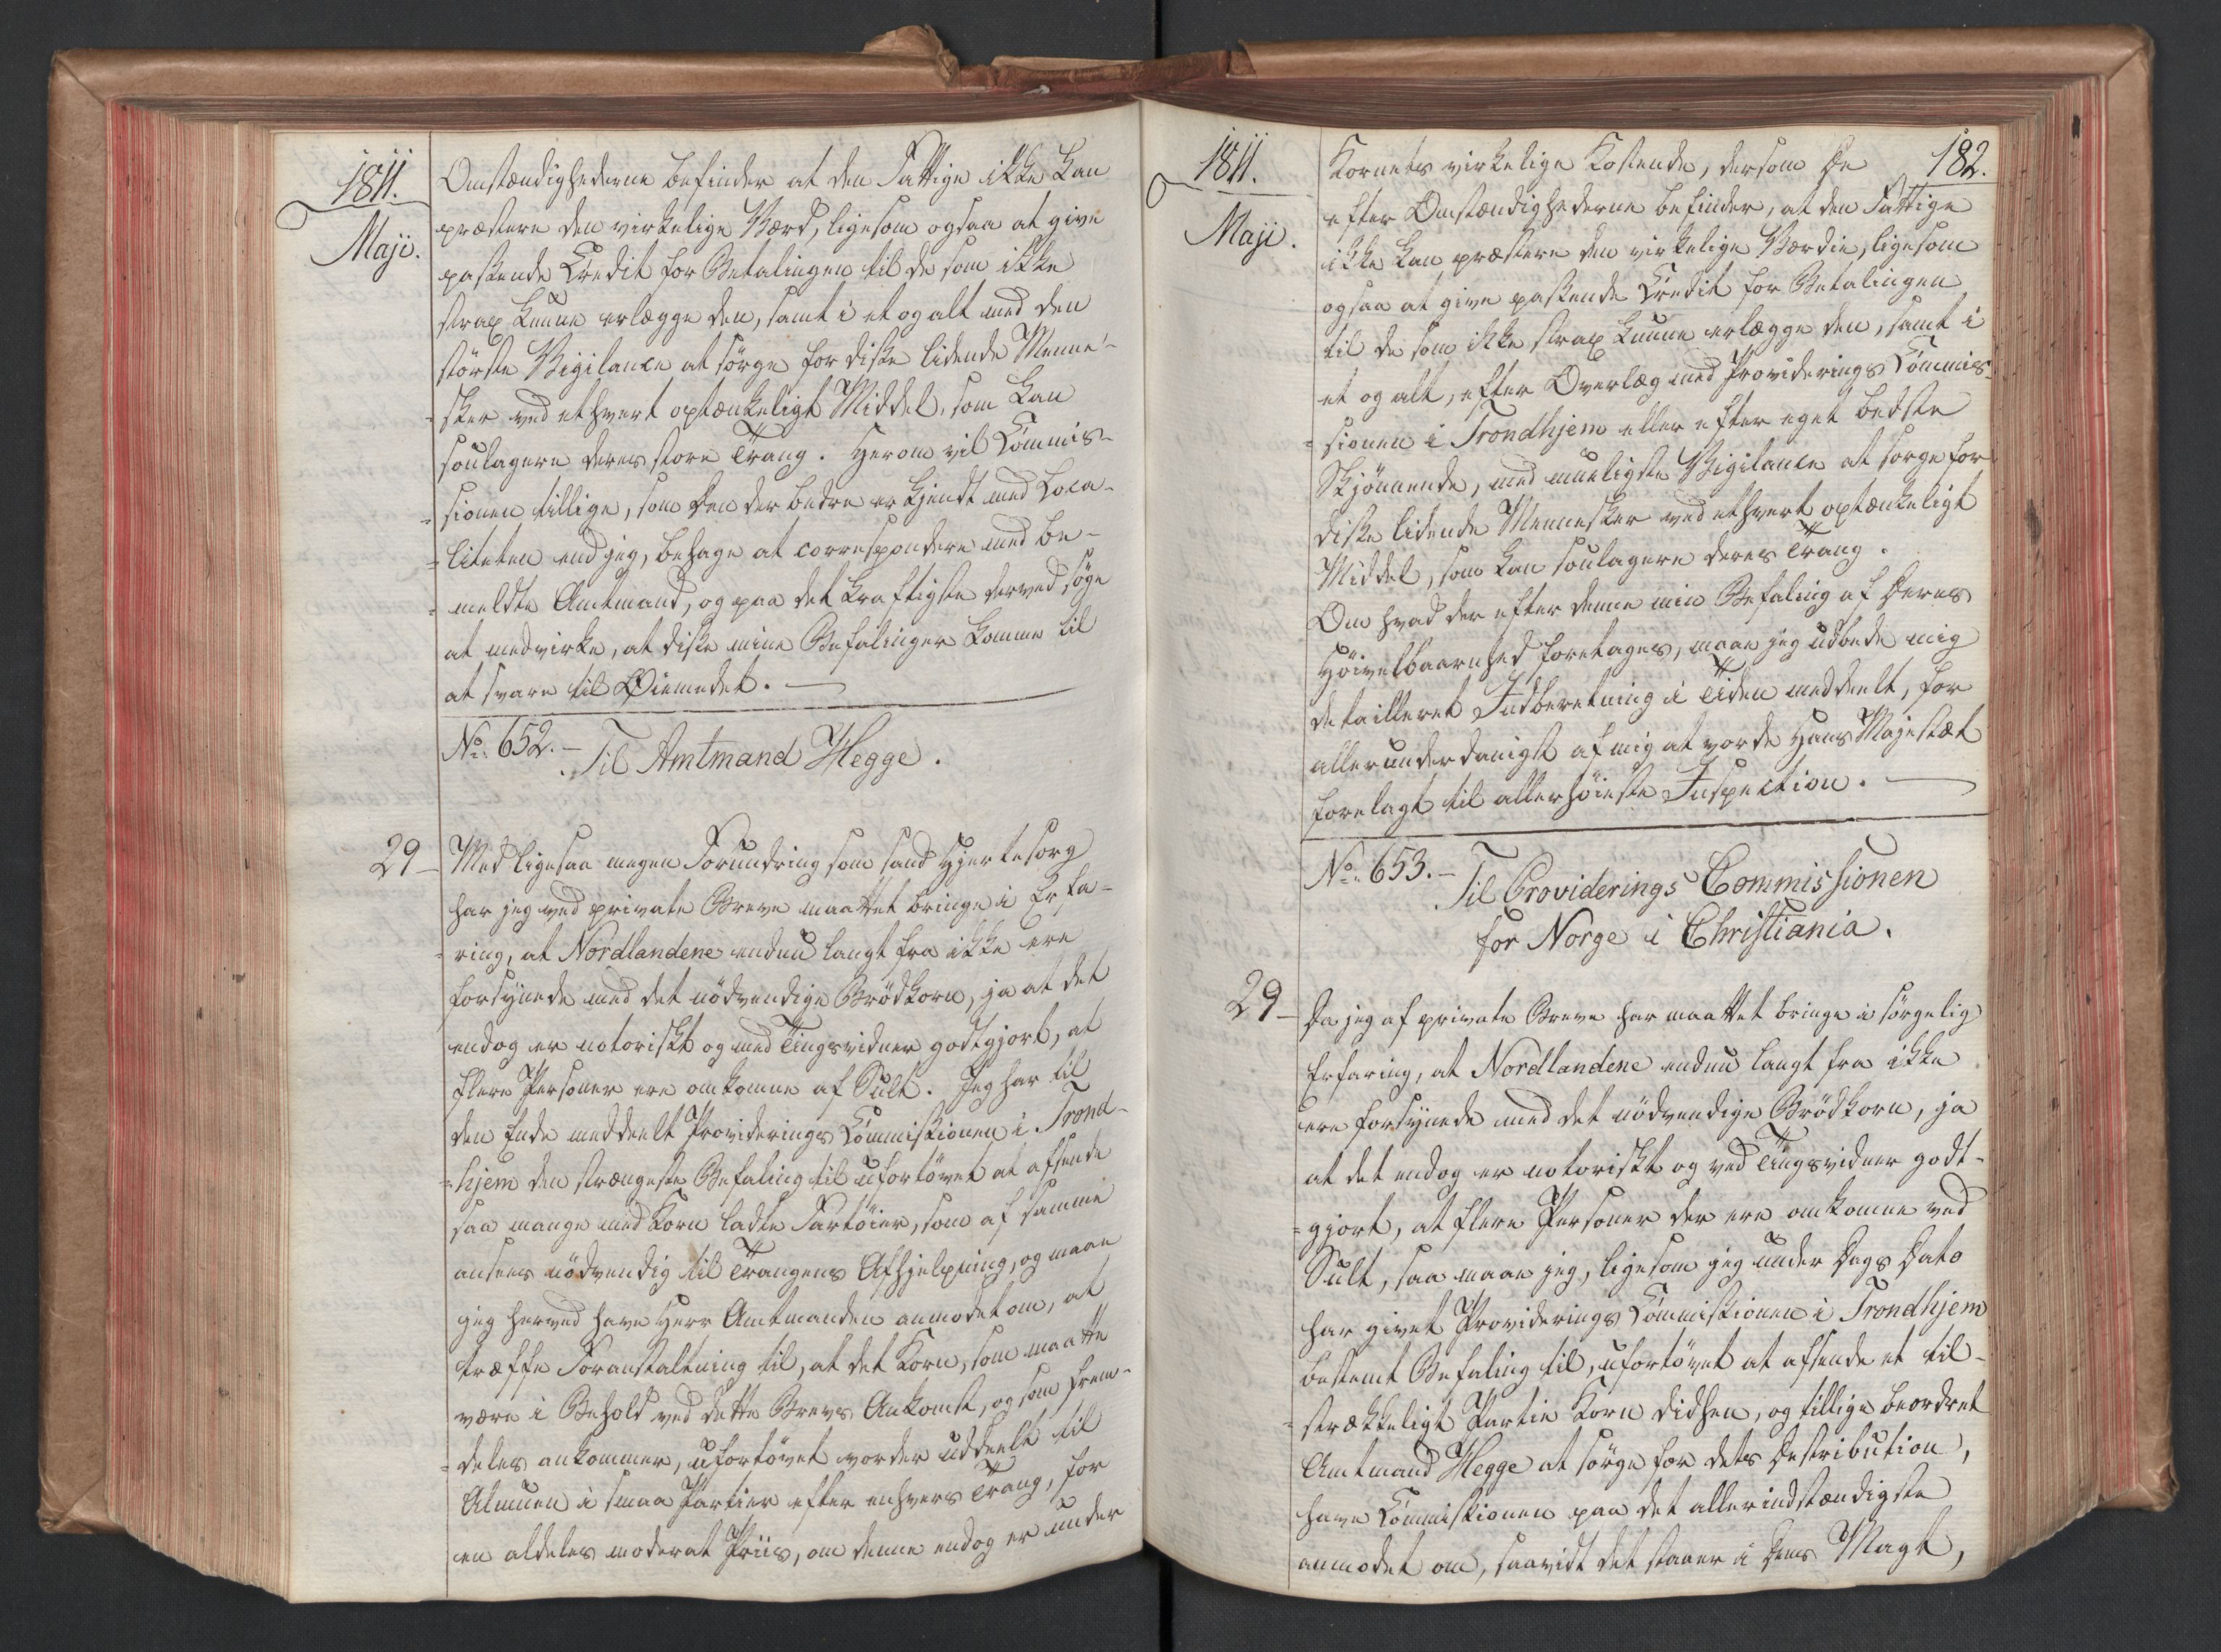 1811.
Maji.
Omstændighederne befinder at den Fattige ikke kan
præstere den virkelige Værd, ligesom ogsaa at give
passende Credit for Betalingen til de som ikke
strax kunne erlægge den, samt i et og alt med den
störste Vigilance at sörge for disse lidende Menne-
-sker ved ethvert optænkeligt Middel, som kan
soulagere deres store Trang. Herom vil Commis-
-sionen tillige, som den der bedre er kjendt med Loca-
-liteten end jeg, behage at correspondere med be-
-meldte Amtmand, og paa det kraftigste derved söge
at medvirke, at disse mine Befalinger komme til
at svare til Öiemedet.
No. 652.
Til Amtmand Hegge.
29
Med ligesaa megen Forundring som sand Hjertesorg
har jeg ved private Breve maattet bringe i Erfa-
-ring, at Nordlandene endnu langt fra ikke ere
forsynede med det nödvendige Brödkorn, ja at det
endog er notoriskt og med Tingsvidner godtgjort, at
flere Personer ere omkomne af Sult. Jeg har til
den Ende meddeelt Providerings Commissionen i Trond-
-hjem den strængeste Befaling til ufortövet at afsende
saa mange med Korn ladte Fartöier, som af samme
ansees nödvendig til Trangens Afhjelpning, og maae
jeg herved have Herr Amtmanden anmodet om, at
træffe Foranstaltning til, at det Korn, som maatte
være i Behold ved dette Brevs Ankomst, og som frem-
-deles ankommer, ufortövet vorder uddeelt til
Almuen i smaa Partier efter enhvers Trang, for
en aldeles moderat Priis, om denne endog er under
1811.
Maji.
182.
Kornets virkelige Kostende, dersom De
efter Omstændighederne befinder, at den Fattige
ikke kan præstere den virkelige Værdie, ligesom
ogsaa at give passende Credit for Betalingen
til de som ikke strax kunne erlægge den, samt i
et og alt, efter Overlæg med Providerings Commis-
-sionen i Trondhjem eller efter eget bedste
Skjönnende, med mueligste Vigilance at sörge for
disse lidende Mennesker ved ethvert optænkeligt
Middel, som kan soulagere deres Trang.
Om hvad der efter denne min Befaling af Deres
Höivelbaarenhed foretages, maae jeg udbede mig
detailleret Indberetning i Tiden meddeelt, for
allerunderdanigst af mig at vorde Hans Majestæt
forelagt til allerhöieste Inspection.
No. 653.
Til Providerings Commissionen
for Norge i Christiania.
29
Da jeg af private Breve har maattet bringe i sörgelig
Erfaring, at Nordlandene endnu langt fra ikke
ere forsynede med det nödvendige Brödkorn, ja
at det endog er notoriskt og ved Tingsvidner godt-
-gjort, at flere Personer der ere omkomne ved
Sult, saa maae jeg, ligesom jeg under Dags Dato
har givet Providerings Commissionen i Trondhjem
bestemt Befaling til, ufortövet at afsende et til-
-strækkeligt Partie Korn didhen, og tillige beordret
Amtmand Hegge at sörge for dets Destribution,
have Commissionen paa det allerindstændigste
anmodet om, saavidt det staaer i Dens Magt,